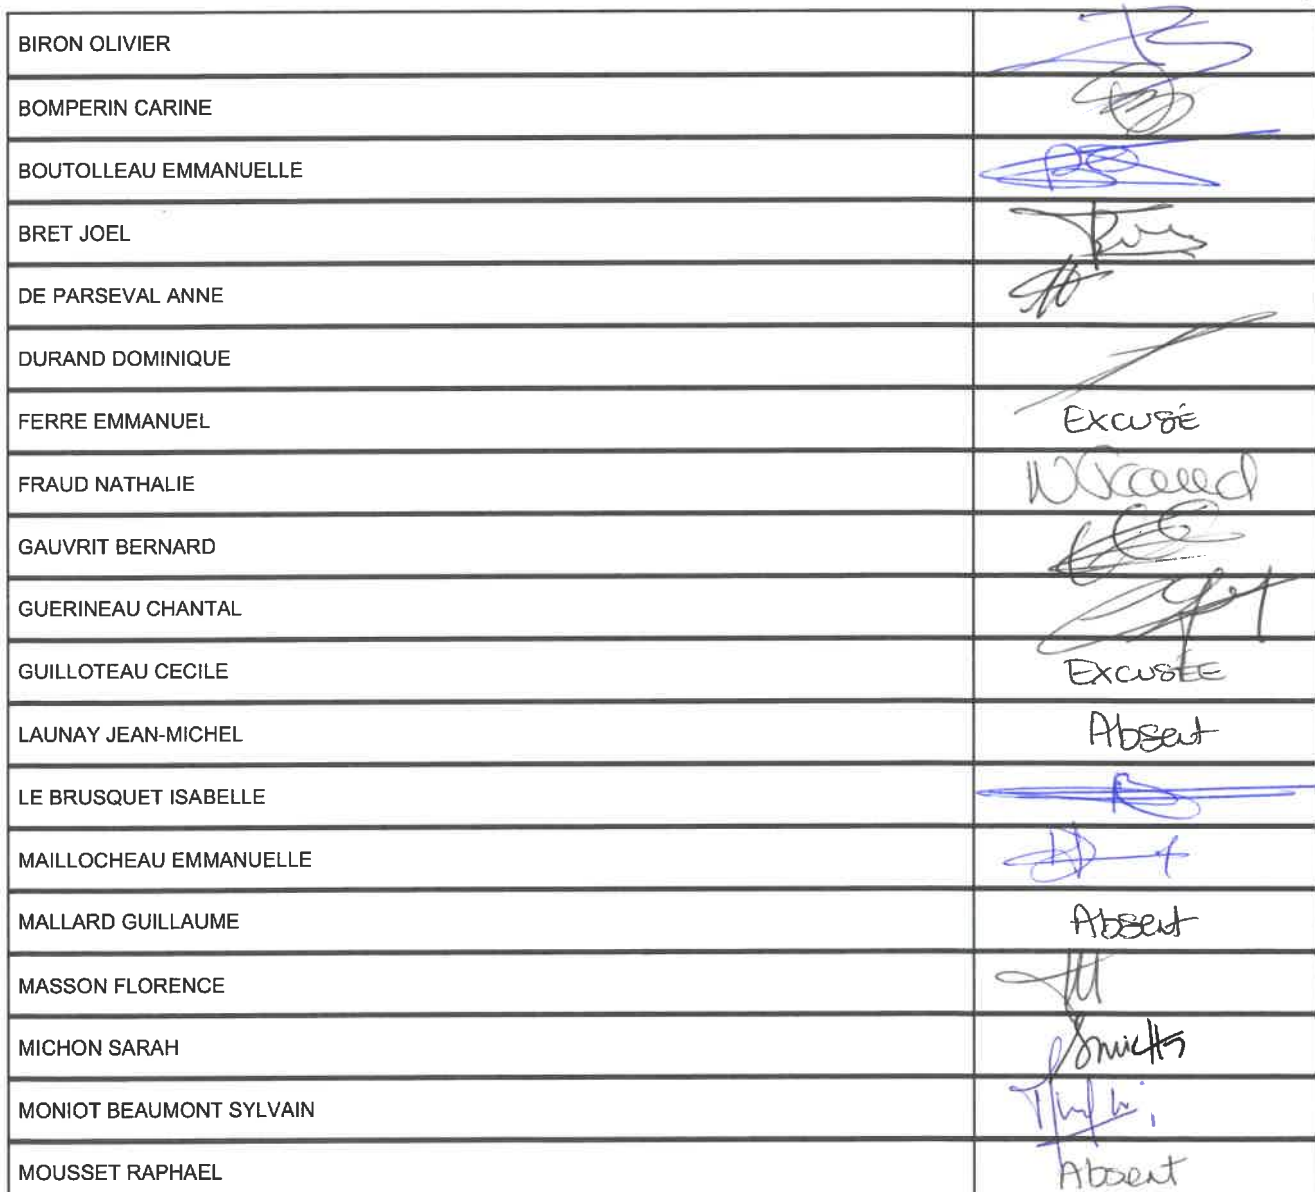 BIRON OLIVIER
BOMPERIN CARINE
BOUTOLLEAU EMMANUELLE
BRET JOEL
DE PARSEVAL ANNE
DURAND DOMINIQUE
FERRE EMMANUEL EXCUSÉ
FRAUD NATHALIE
GAUVRIT BERNARD
GUERINEAU CHANTAL
GUILLOTEAU CECILE EXCUSÉE
LAUNAY JEAN-MICHEL Absent
LE BRUSQUET ISABELLE
MAILLOCHEAU EMMANUELLE
MALLARD GUILLAUME Absent
MASSON FLORENCE
MICHON SARAH
MONIOT BEAUMONT SYLVAIN
MOUSSET RAPHAEL Absent